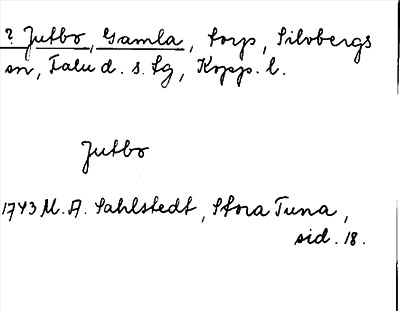 ? Jutbo, Gamla, torp, Silvbergs
sn, Falu d. s. lg, Kopp. l.
Jutbo
1743 M. A. Sahlstedt, Stora Tuna,
sid. 18.